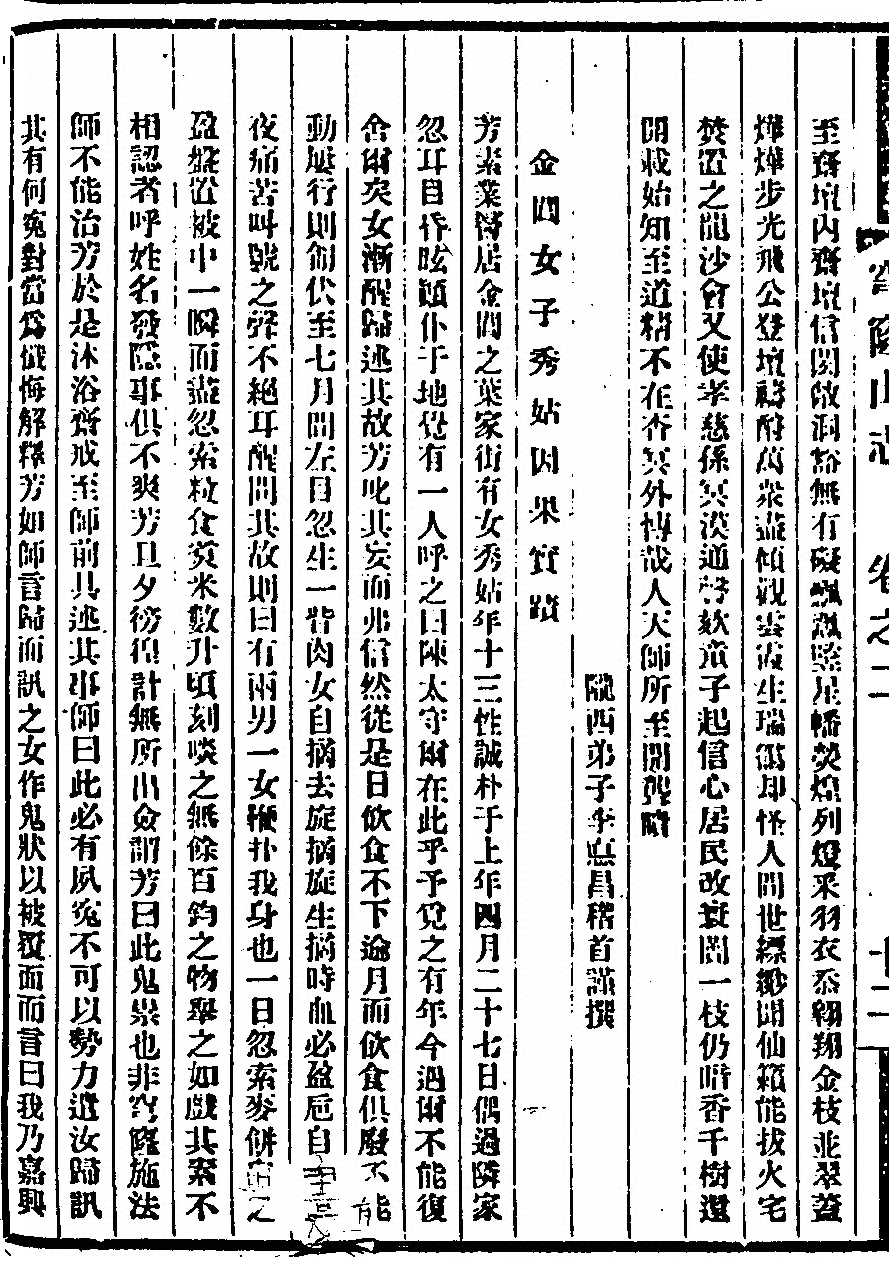 穹窿山志 卷之二 十二
至齋壇內齋壇信開敞洞豁無有礙飄飄墜星幡熒煌列燈采羽衣忝翱翔金枝並翠蓋
燁燁步光飛公登壇醮酧萬衆盡傾觀雲霞生瑞靄却怪人間世縹緲開仙籟能拔火宅
焚置之龍沙會又使孝慈孫冥漠通謦欬童子起信心居民改衰閭一枝仍暗香千樹還
開載始知至道精不在杳冥外博哉人天師所至開聾聵
隴西弟子李 昌稽首謹撰
金閶女子秀姑因果實蹟
芳素業 居金閶之葉家街有女秀姑年十三性誠朴于上年四月二十七日偶過隣家
忽耳目昏眩顚仆于地覺有一人呼之曰陳太守爾在此乎予覓之有年今過爾不能復
舍爾矣女漸醒歸述其故芳叱其妄而弗信然從是日飲食不下逾月而飲食俱廢不能
動履行則匍伏至七月間左目忽生一眥肉女自摘去旋摘旋生摘時血必盈巵自
夜痛苦叫號之聲不絕耳醒問其故則曰有兩男一女鞭扑我身也一日忽索麥餅 之
盈盤置被中一瞬而盡忽索粒食炊米數升頃刻啖之無餘百鈞之物舉之如戲其素不
相認者呼姓名發隱事俱不爽芳旦夕徬徨計無所出僉謂芳曰此鬼祟也非穹窿施法
師不能治芳於是沐浴齋戒至師前具述其事師曰此必有夙寃不可以勢力遣汝歸訊
其有何寃對當爲懺悔解釋芳如師言歸而訊之女作鬼狀以被覆面而言曰我乃嘉興